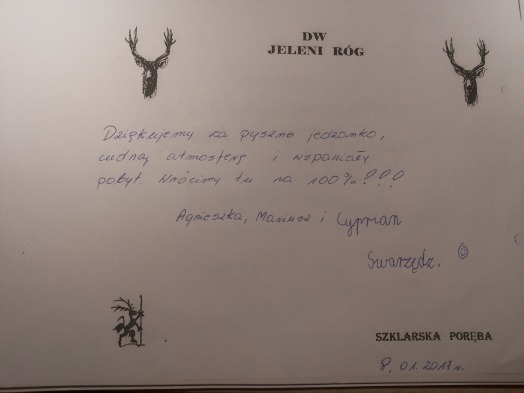 DW
JELENI RÓG
Dziękujemy za pyszne jedzonko,
cudną atmosferę i wspaniały
pobyt. Wrócimy tu na 100%!!!
Agnieszka, Mariusz i Cyprian
Swarzędz. ☺
SZKLARSKA PORĘBA
8.01.2017r.